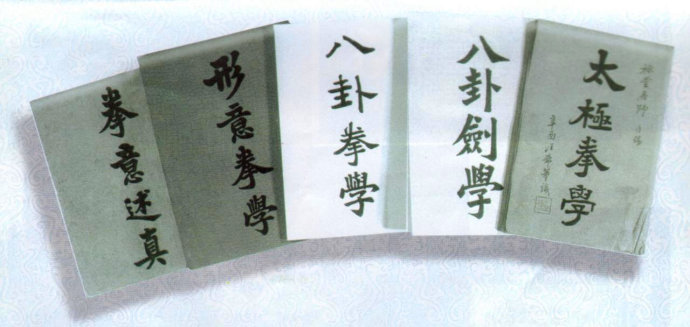 拳意述真
形意拳學
八卦拳學
八卦劍學
太極拳學